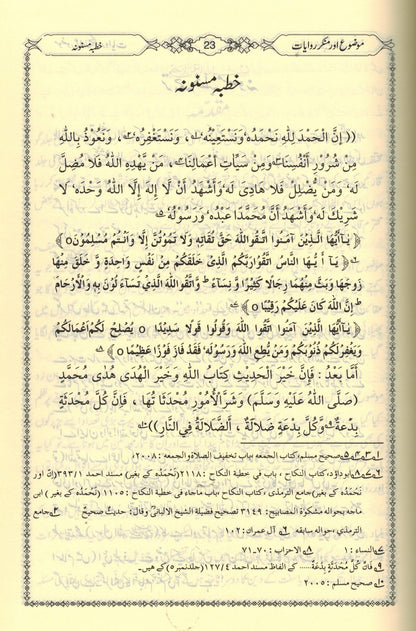 موضوع اور منکر روایات 23 خطبہ مسنونہ
خطبہ مسنونہ
(( إِنَّ الْحَمْدَ لِلّٰهِ نَحْمَدُهٗ وَنَسْتَعِيْنُهٗ، وَنَسْتَغْفِرُهٗ، وَنَعُوْذُ بِاللّٰهِ
مِنْ شُرُوْرِ أَنْفُسِنَا وَمِنْ سَيِّآتِ أَعْمَالِنَا، مَنْ يَّهْدِهِ اللّٰهُ فَلَا مُضِلَّ
لَهٗ وَمَنْ يُّضْلِلْ فَلَا هَادِىَ لَهٗ وَأَشْهَدُ أَنْ لَّا إِلٰهَ إِلَّا اللّٰهُ وَحْدَهٗ لَا
شَرِيْكَ لَهٗ وَأَشْهَدُ أَنَّ مُحَمَّدًا عَبْدُهٗ وَرَسُوْلُهٗ
﴿ يٰٓأَيُّهَا الَّذِيْنَ آمَنُوا اتَّقُوا اللّٰهَ حَقَّ تُقَاتِهٖ وَلَا تَمُوْتُنَّ إِلَّا وَأَنْتُمْ مُّسْلِمُوْنَ ﴾
﴿ يٰٓأَيُّهَا النَّاسُ اتَّقُوْا رَبَّكُمُ الَّذِيْ خَلَقَكُمْ مِّنْ نَّفْسٍ وَاحِدَةٍ وَّ خَلَقَ مِنْهَا
زَوْجَهَا وَبَثَّ مِنْهُمَا رِجَالًا كَثِيْرًا وَّ نِسَآءً ط وَاتَّقُوا اللّٰهَ الَّذِيْ تَسَآءَلُوْنَ بِهٖ وَالْأَرْحَامَ
ط إِنَّ اللّٰهَ كَانَ عَلَيْكُمْ رَقِيْبًا ﴾
﴿ يٰٓأَيُّهَا الَّذِيْنَ آمَنُوا اتَّقُوا اللّٰهَ وَقُوْلُوْا قَوْلًا سَدِيْدًا ٥ يُّصْلِحْ لَكُمْ أَعْمَالَكُمْ
وَيَغْفِرْ لَكُمْ ذُنُوْبَكُمْ وَمَنْ يُّطِعِ اللّٰهَ وَرَسُوْلَهٗ فَقَدْ فَازَ فَوْزًا عَظِيْمًا ﴾
أَمَّا بَعْدُ : فَإِنَّ خَيْرَ الْحَدِيْثِ كِتَابُ اللّٰهِ وَخَيْرَ الْهَدْىِ هَدْىُ مُحَمَّدٍ
(صَلَّى اللّٰهُ عَلَيْهِ وَسَلَّمَ) وَشَرَّ الْأُمُوْرِ مُحْدَثَاتُهَا ، فَإِنَّ كُلَّ مُحْدَثَةٍ
بِدْعَةٌ وَّكُلَّ بِدْعَةٍ ضَلَالَةٌ ، اَلضَّلَالَةُ فِي النَّارِ ))
صحیح مسلم، کتاب الجمعہ باب تخفیف الصلاۃ والجمعۃ : ۲۰۰۸
ابوداؤد، کتاب النکاح ، باب فی خطبۃ النکاح : ۲۱۱۸ (نَحْمَدُهٗ کے بغیر) مسند احمد ۳۹۳/۱ (أنّ اور
نَحْمَدُهٗ کے بغیر) جامع الترمذی ، کتاب النکاح ، باب ماجاء فی خطبۃ النکاح : ۱۱۰۵ (نَحْمَدُهٗ کے بغیر) ابن
ماجہ بحوالہ مشکوۃ المصابیح : ۳۱۴۹ تصحیح فضیلۃ الشیخ الالبانی وقال: حدیث صحیح جامع
الترمذی، حوالہ سابقہ آل عمران : ۱۰۲
النساء : ۱ الاحزاب : ۷۰-۷۱
فَإِنَّ كُلَّ مُحْدَثَةٍ بِدْعَةٌ ..... کے الفاظ مسند احمد ۱۲۷/۴ (جلد نمبر ۵) کے ہیں۔
صحیح مسلم : ۲۰۰۵